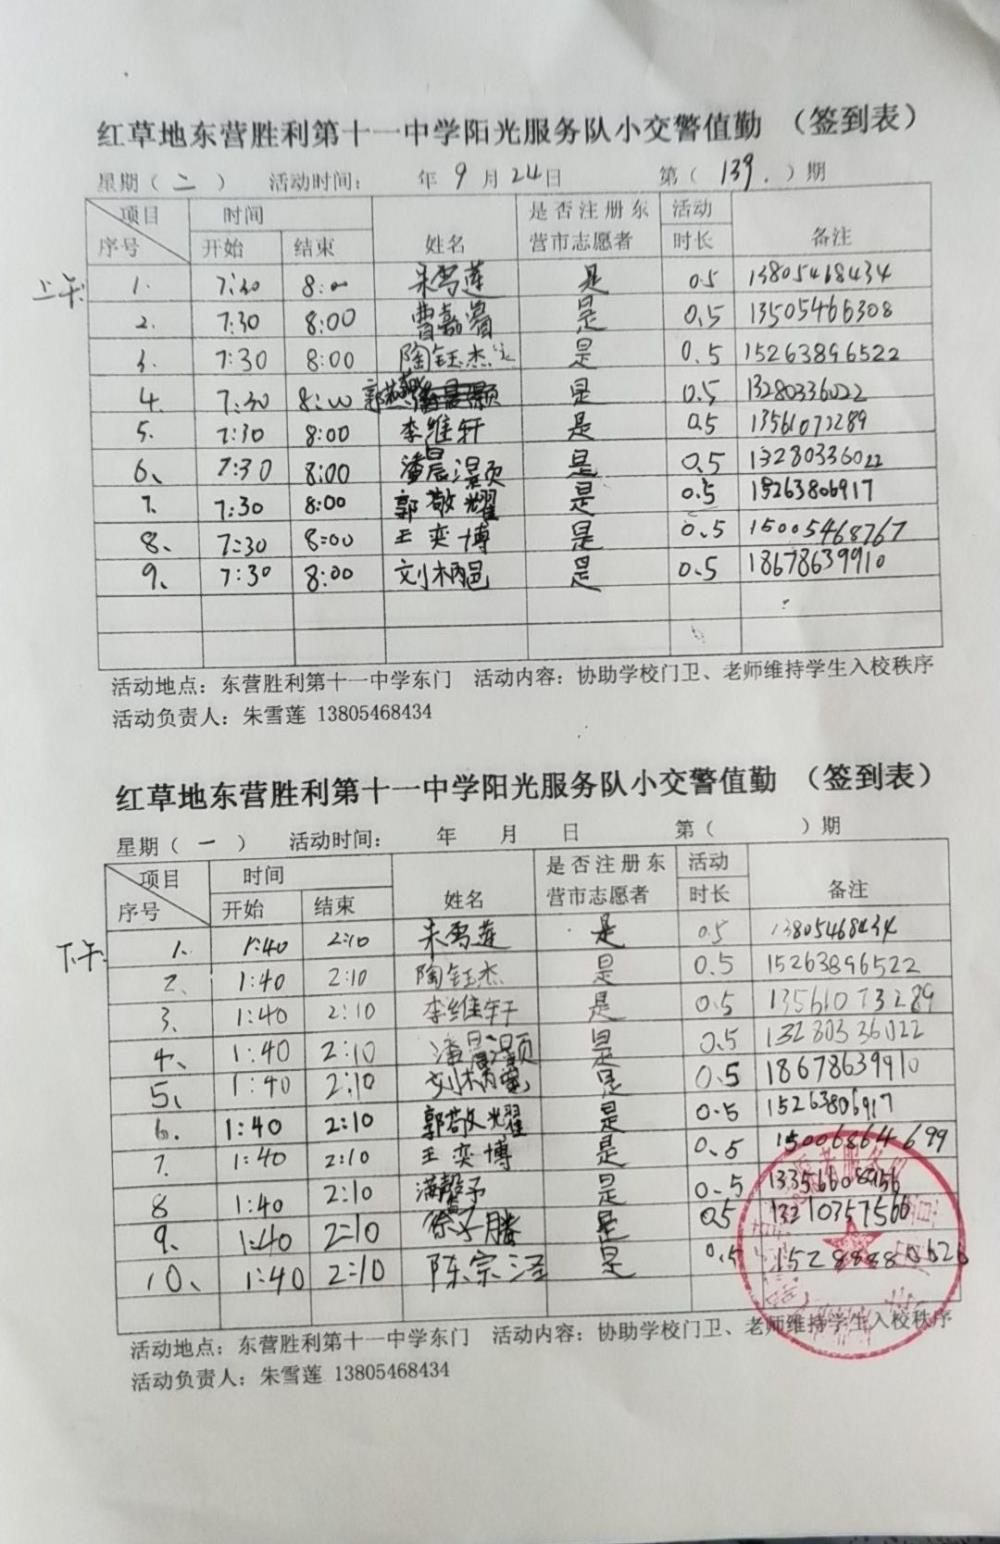 红草地东营胜利第十一中学阳光服务队小交警值勤 （签到表）
星期（ 二 ） 活动时间： 年 9 月 24 日 第（ 139. ）期
项目 时间 是否注册东 活动
序号 开始 结束 姓名 营市志愿者 时长 备注
上午
1. 7:30 8:00 朱雪莲 是 0.5 13805468434
2. 7:30 8:00 曹嘉 是 0.5 13505466308
3. 7:30 8:00 陶钰杰 是 0.5 15263896522
4. 7:30 8:00 郭 是 0.5 13280336022
5. 7:30 8:00 李维轩 是 0.5 13561073289
6、 7:30 8:00 潘晨灏 是 0.5 13280336022
7. 7:30 8:00 郭敬耀 是 0.5 15263806917
8、 7:30 8:00 王奕博 是 0.5 15005468767
9、 7:30 8:00 刘柄邑 是 0.5 18678639910
活动地点：东营胜利第十一中学东门 活动内容：协助学校门卫、老师维持学生入校秩序
活动负责人：朱雪莲 13805468434
红草地东营胜利第十一中学阳光服务队小交警值勤 （签到表）
星期（ 一 ） 活动时间： 年 月 日 第（ ）期
项目 时间 是否注册东 活动
序号 开始 结束 姓名 营市志愿者 时长 备注
下午
1. 1:40 2:10 朱雪莲 是 0.5 13805468434
2、 1:40 2:10 陶钰杰 是 0.5 15263896522
3、 1:40 2:10 李维轩 是 0.5 13561073289
4、 1:40 2:10 潘晨灏 是 0.5 13280336022
5、 1:40 2:10 刘柄邑 是 0.5 18678639910
6. 1:40 2:10 郭敬耀 是 0.5 15263806917
7. 1:40 2:10 王奕博 是 0.5 15006864699
8 1:40 2:10 满馨予 是 0.5 13356608956
9、 1:40 2:10 徐子腾 是 0.5 13210357566
10、 1:40 2:10 陈宗泽 是 0.5
活动地点：东营胜利第十一中学东门 活动内容：协助学校门卫、老师维持学生入校秩序
活动负责人：朱雪莲 13805468434